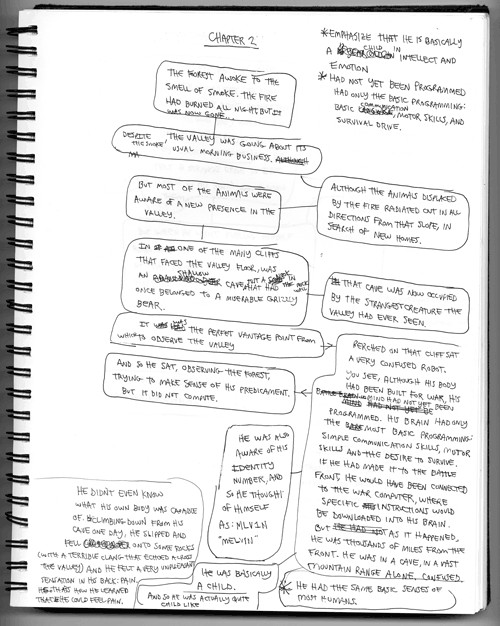 CHAPTER 2
*EMPHASIZE THAT HE IS BASICALLY
A CHILD IN INTELLECT AND
EMOTION
* HAD NOT YET BEEN PROGRAMMED
HAD ONLY THE BASIC PROGRAMMING:
BASIC COMMUNICATION, MOTOR SKILLS, AND
SURVIVAL DRIVE.
THE FOREST AWOKE TO THE
SMELL OF SMOKE. THE FIRE
HAD BURNED ALL NIGHT BUT IT
WAS NOW GONE...
DESPITE THE SMOKE, THE VALLEY WAS GOING ABOUT ITS
USUAL MORNING BUSINESS. ALTHOUGH
BUT MOST OF THE ANIMALS WERE
AWARE OF A NEW PRESENCE IN THE
VALLEY.
ALTHOUGH THE ANIMALS DISPLACED
BY THE FIRE RADIATED OUT IN ALL
DIRECTIONS FROM THAT SLOPE, IN
SEARCH OF NEW HOMES.
IN ONE OF THE MANY CLIFFS
THAT FACED THE VALLEY FLOOR, WAS
AN SHALLOW CAVE, THAT HAD
ONCE BELONGED TO A MISERABLE GRIZZLY
BEAR.
THAT CAVE WAS NOW OCCUPIED
BY THE STRANGEST CREATURE THE
VALLEY HAD EVER SEEN.
IT WAS THE PERFET VANTAGE POINT FROM
WHICH TO OBSERVE THE VALLEY
PERCHED ON THAT CLIFF SAT
A VERY CONFUSED ROBOT.
YOU SEE, ALTHOUGH HIS BODY
HAD BEEN BUILT FOR WAR, HIS
MIND HAD NOT YET BEEN
PROGRAMMED. HIS BRAIN HAD ONLY
THE MOST BASIC PROGRAMMING:
SIMPLE COMMUNICATION SKILLS, MOTOR
SKILLS AND THE DESIRE TO SURVIVE.
IF HE HAD MADE IT TO THE BATTLE
FRONT, HE WOULD HAVE BEEN CONNECTED
TO THE WAR COMPUTER, WHERE
SPECIFIC INSTRUCTIONS WOULD
BE DOWNLOADED INTO HIS BRAIN.
BUT AS IT HAPPENED,
HE WAS THOUSANDS OF MILES FROM THE
FRONT. HE WAS IN A CAVE, IN A VAST
MOUNTAIN RANGE ALONE, CONFUSED.
AND SO HE SAT, OBSERVING THE FOREST,
TRYING TO MAKE SENSE OF HIS PREDICAMENT.
BUT IT DID NOT COMPUTE.
HE WAS ALSO
AWARE OF HIS
IDENTITY
NUMBER, AND
SO HE THOUGHT
OF HIMSELF
AS: MLV21N
"MELVIN"
HE DIDN'T EVEN KNOW
WHAT HIS OWN BODY WAS CAPABLE
OF. CLIMBING DOWN FROM HIS
CAVE ONE DAY, HE SLIPPED AND
FELL ONTO SOME ROCKS
(WITH A TERRIBLE CLANG THAT ECHOED ACROSS
THE VALLEY) AND HE FELT A VERY UNPLEASANT
SENSATION IN HIS BACK: PAIN.
THAT'S HOW HE LEARNED
THAT HE COULD FEEL PAIN.
HE WAS BASICALLY
A CHILD.
AND SO HE WAS ACTUALLY QUITE
CHILD LIKE
* HE HAD THE SAME BASIC SENSES OF
MOST HUMANS.